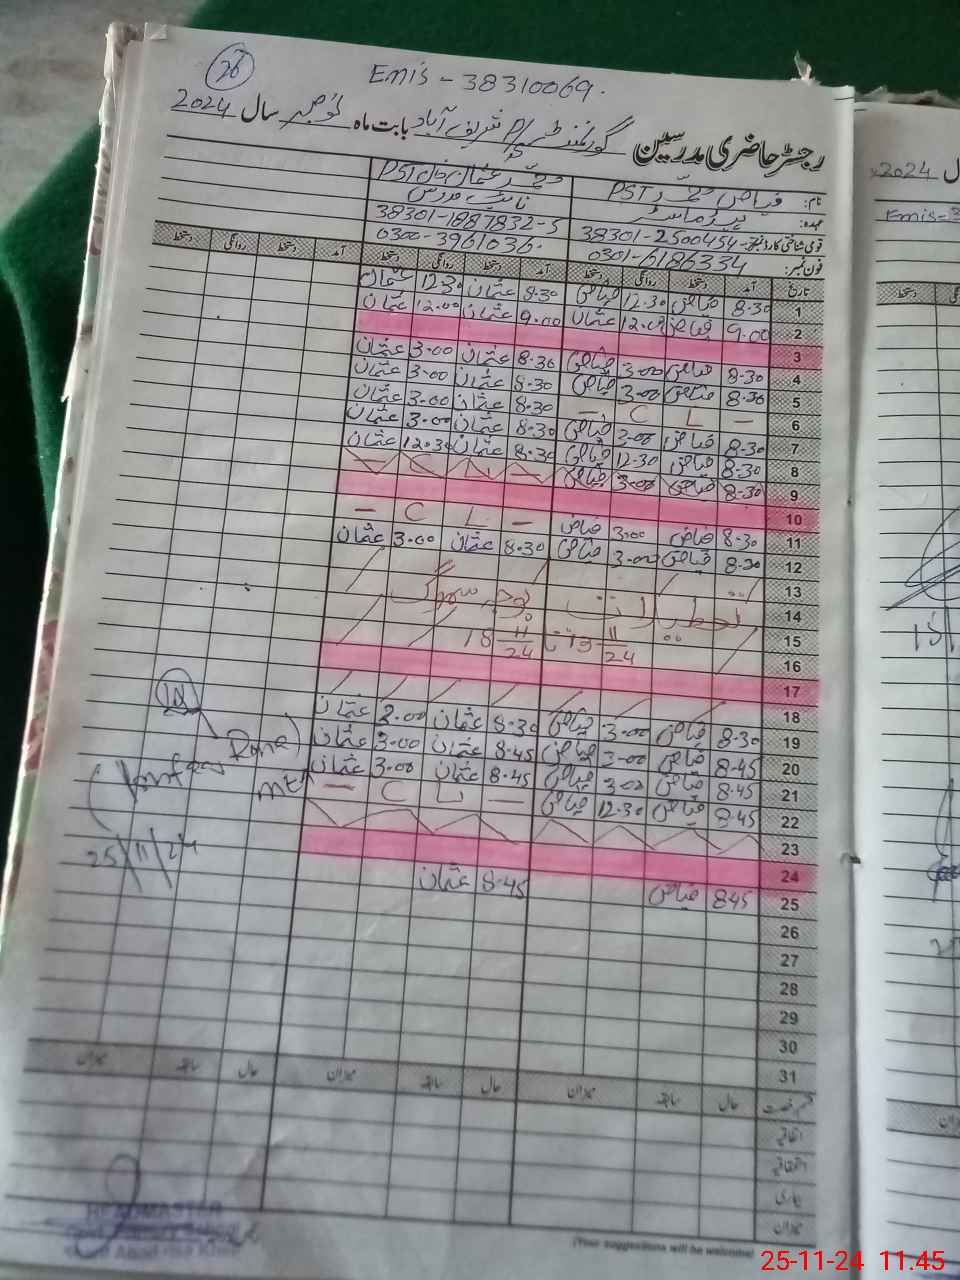 26
Emis - 38310069.
رجسٹر حاضری مدرسین گورنمنٹ P/S شریف آباد بابت ماہ نومبر سال 2024
نام: فیاض محمد PST محمد عثمان خان PST
عہدہ: ہیڈ ماسٹر نائب مدرس
قومی شناختی کارڈ نمبر: 38301-2500454- 38301-1887832-5
فون نمبر: 0301-6186334 0300-3961036.
تاریخ آمد دستخط روانگی دستخط آمد دستخط روانگی دستخط آمد دستخط روانگی دستخط
1 8.30 فیاض 12.30 فیاض 8.30 عثمان 12.30 عثمان
2 9.00 فیاض 12.00 عثمان 9.00 عثمان 12.00 عثمان
3
4 8.30 فیاض 3.00 فیاض 8.30 عثمان 3.00 عثمان
5 8.30 فیاض 3.00 فیاض 8.30 عثمان 3.00 عثمان
6 — L C — 8.30 عثمان 3.00 عثمان
7 8.30 فیاض 3.00 فیاض 8.30 عثمان 3.00 عثمان
8 8.30 فیاض 12.30 فیاض 8.30 عثمان 12.30 عثمان
9 8.30 فیاض 3.00 فیاض
10
11 8.30 فیاض 3.00 فیاض — L C —
12 8.30 فیاض 3.00 فیاض 8.30 عثمان 3.00 عثمان
13
14 تعطیلات بوجہ سموگ
15
16
17
18
19 8.30 فیاض 3.00 فیاض 8.30 عثمان 2.00 عثمان
20 8.45 فیاض 3.00 فیاض 8.45 عثمان 3.00 عثمان
21 8.45 فیاض 3.00 فیاض 8.45 عثمان 3.00 عثمان
22 8.45 فیاض 12.30 فیاض — L C —
23
24
25 845 فیاض 8.45 عثمان
25/11/24
26
27
28
29
30
31
قسم رخصت حال سابقہ میزان حال سابقہ میزان حال سابقہ میزان
اتفاقیہ
استحقاقیہ
بیماری
میزان
HEADMASTER
(Your suggestions will be welcome)
سال 2024
Emis-3
25-11-24 11.45